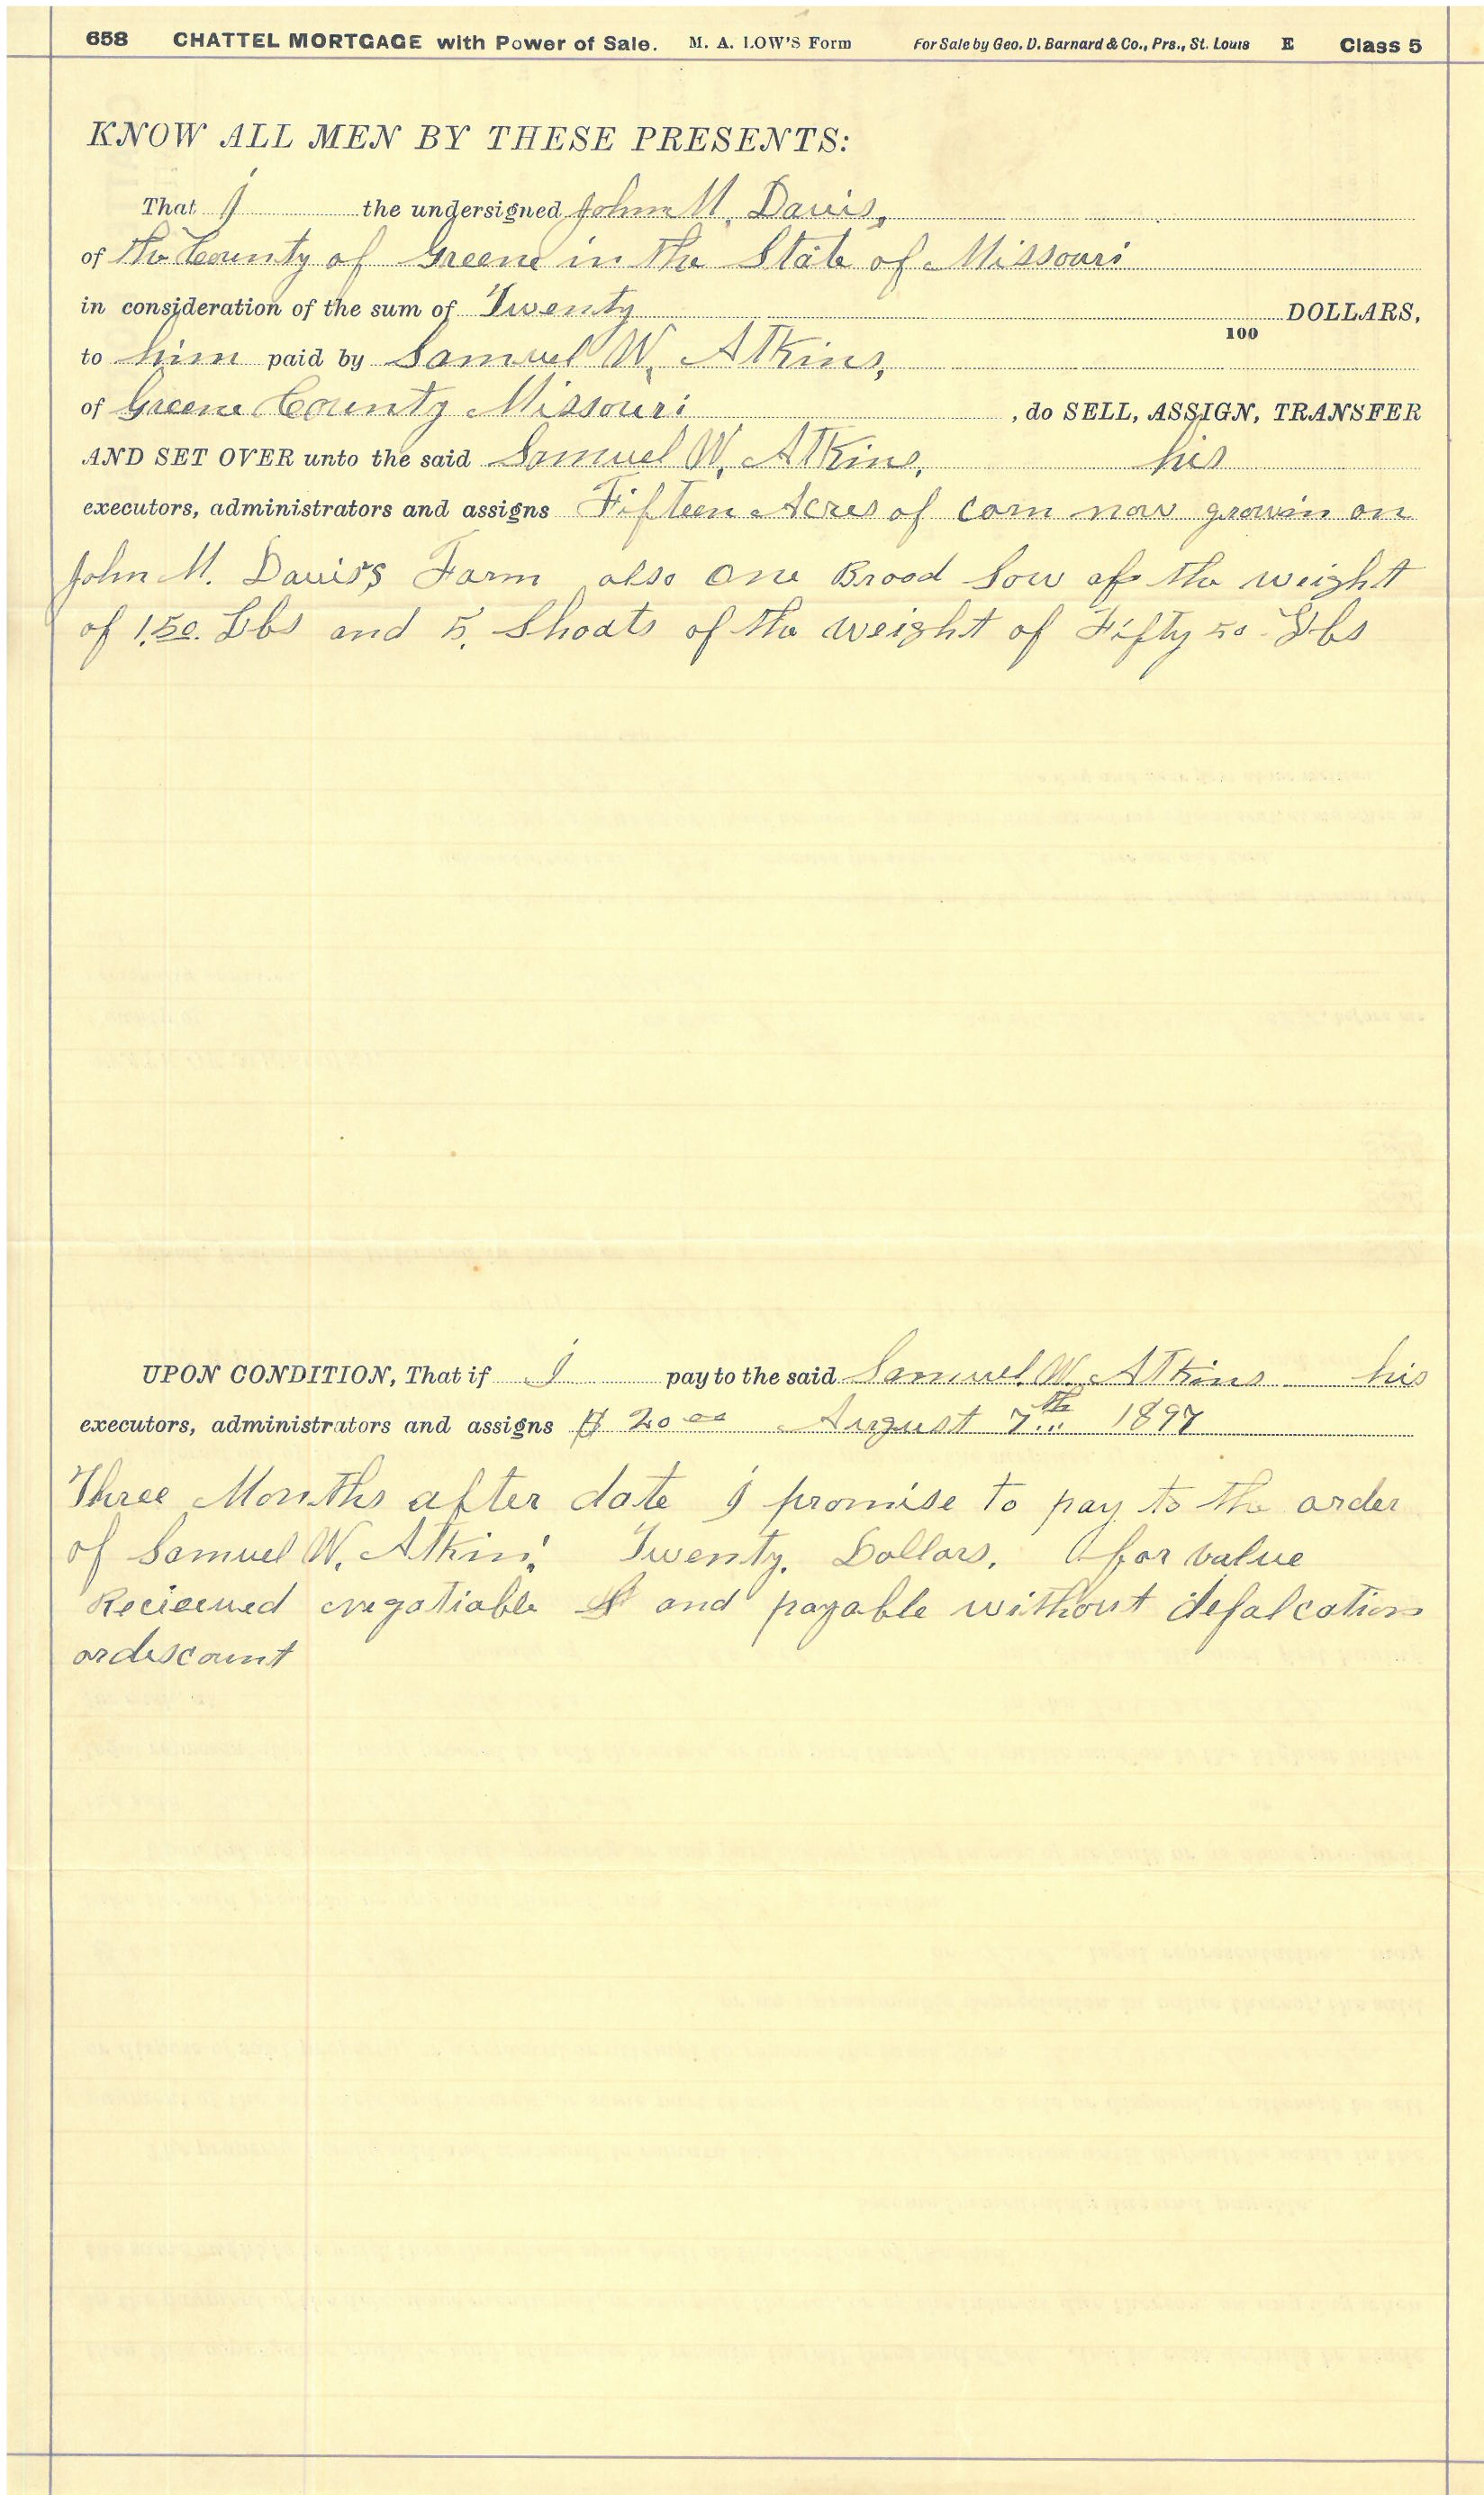 658 CHATTEL MORTGAGE with Power of Sale. M. A. LOW'S Form For Sale by Geo. D. Barnard & Co., Prs., St. Louis E Class 5
KNOW ALL MEN BY THESE PRESENTS:
That I the undersigned John M. Davis,
of the County of Greene in the State of Missouri
in consideration of the sum of Twenty DOLLARS,
100
to him paid by Samuel W. Atkins,
of Greene County Missouri , do SELL, ASSIGN, TRANSFER
AND SET OVER unto the said Samuel W. Atkins, his
executors, administrators and assigns Fifteen Acres of corn now growin on
John M. Davis's Farm also One Brood Sow of the weight
of 150. Lbs and 5. Shoats of the weight of Fifty 50 Lbs
UPON CONDITION, That if I pay to the said Samuel W. Atkins his
executors, administrators and assigns $ 20 00 August 7th 1897
Three Months after date I promise to pay to the order
of Samuel W. Atkins Twenty. Dollars. for value
Recieeued negotiable and payable without defalcation
or discount